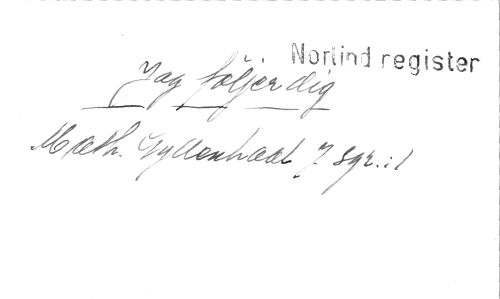 Norlind register
Jag följer dig
Math. Gyllenhaal 7 sgr. : 1